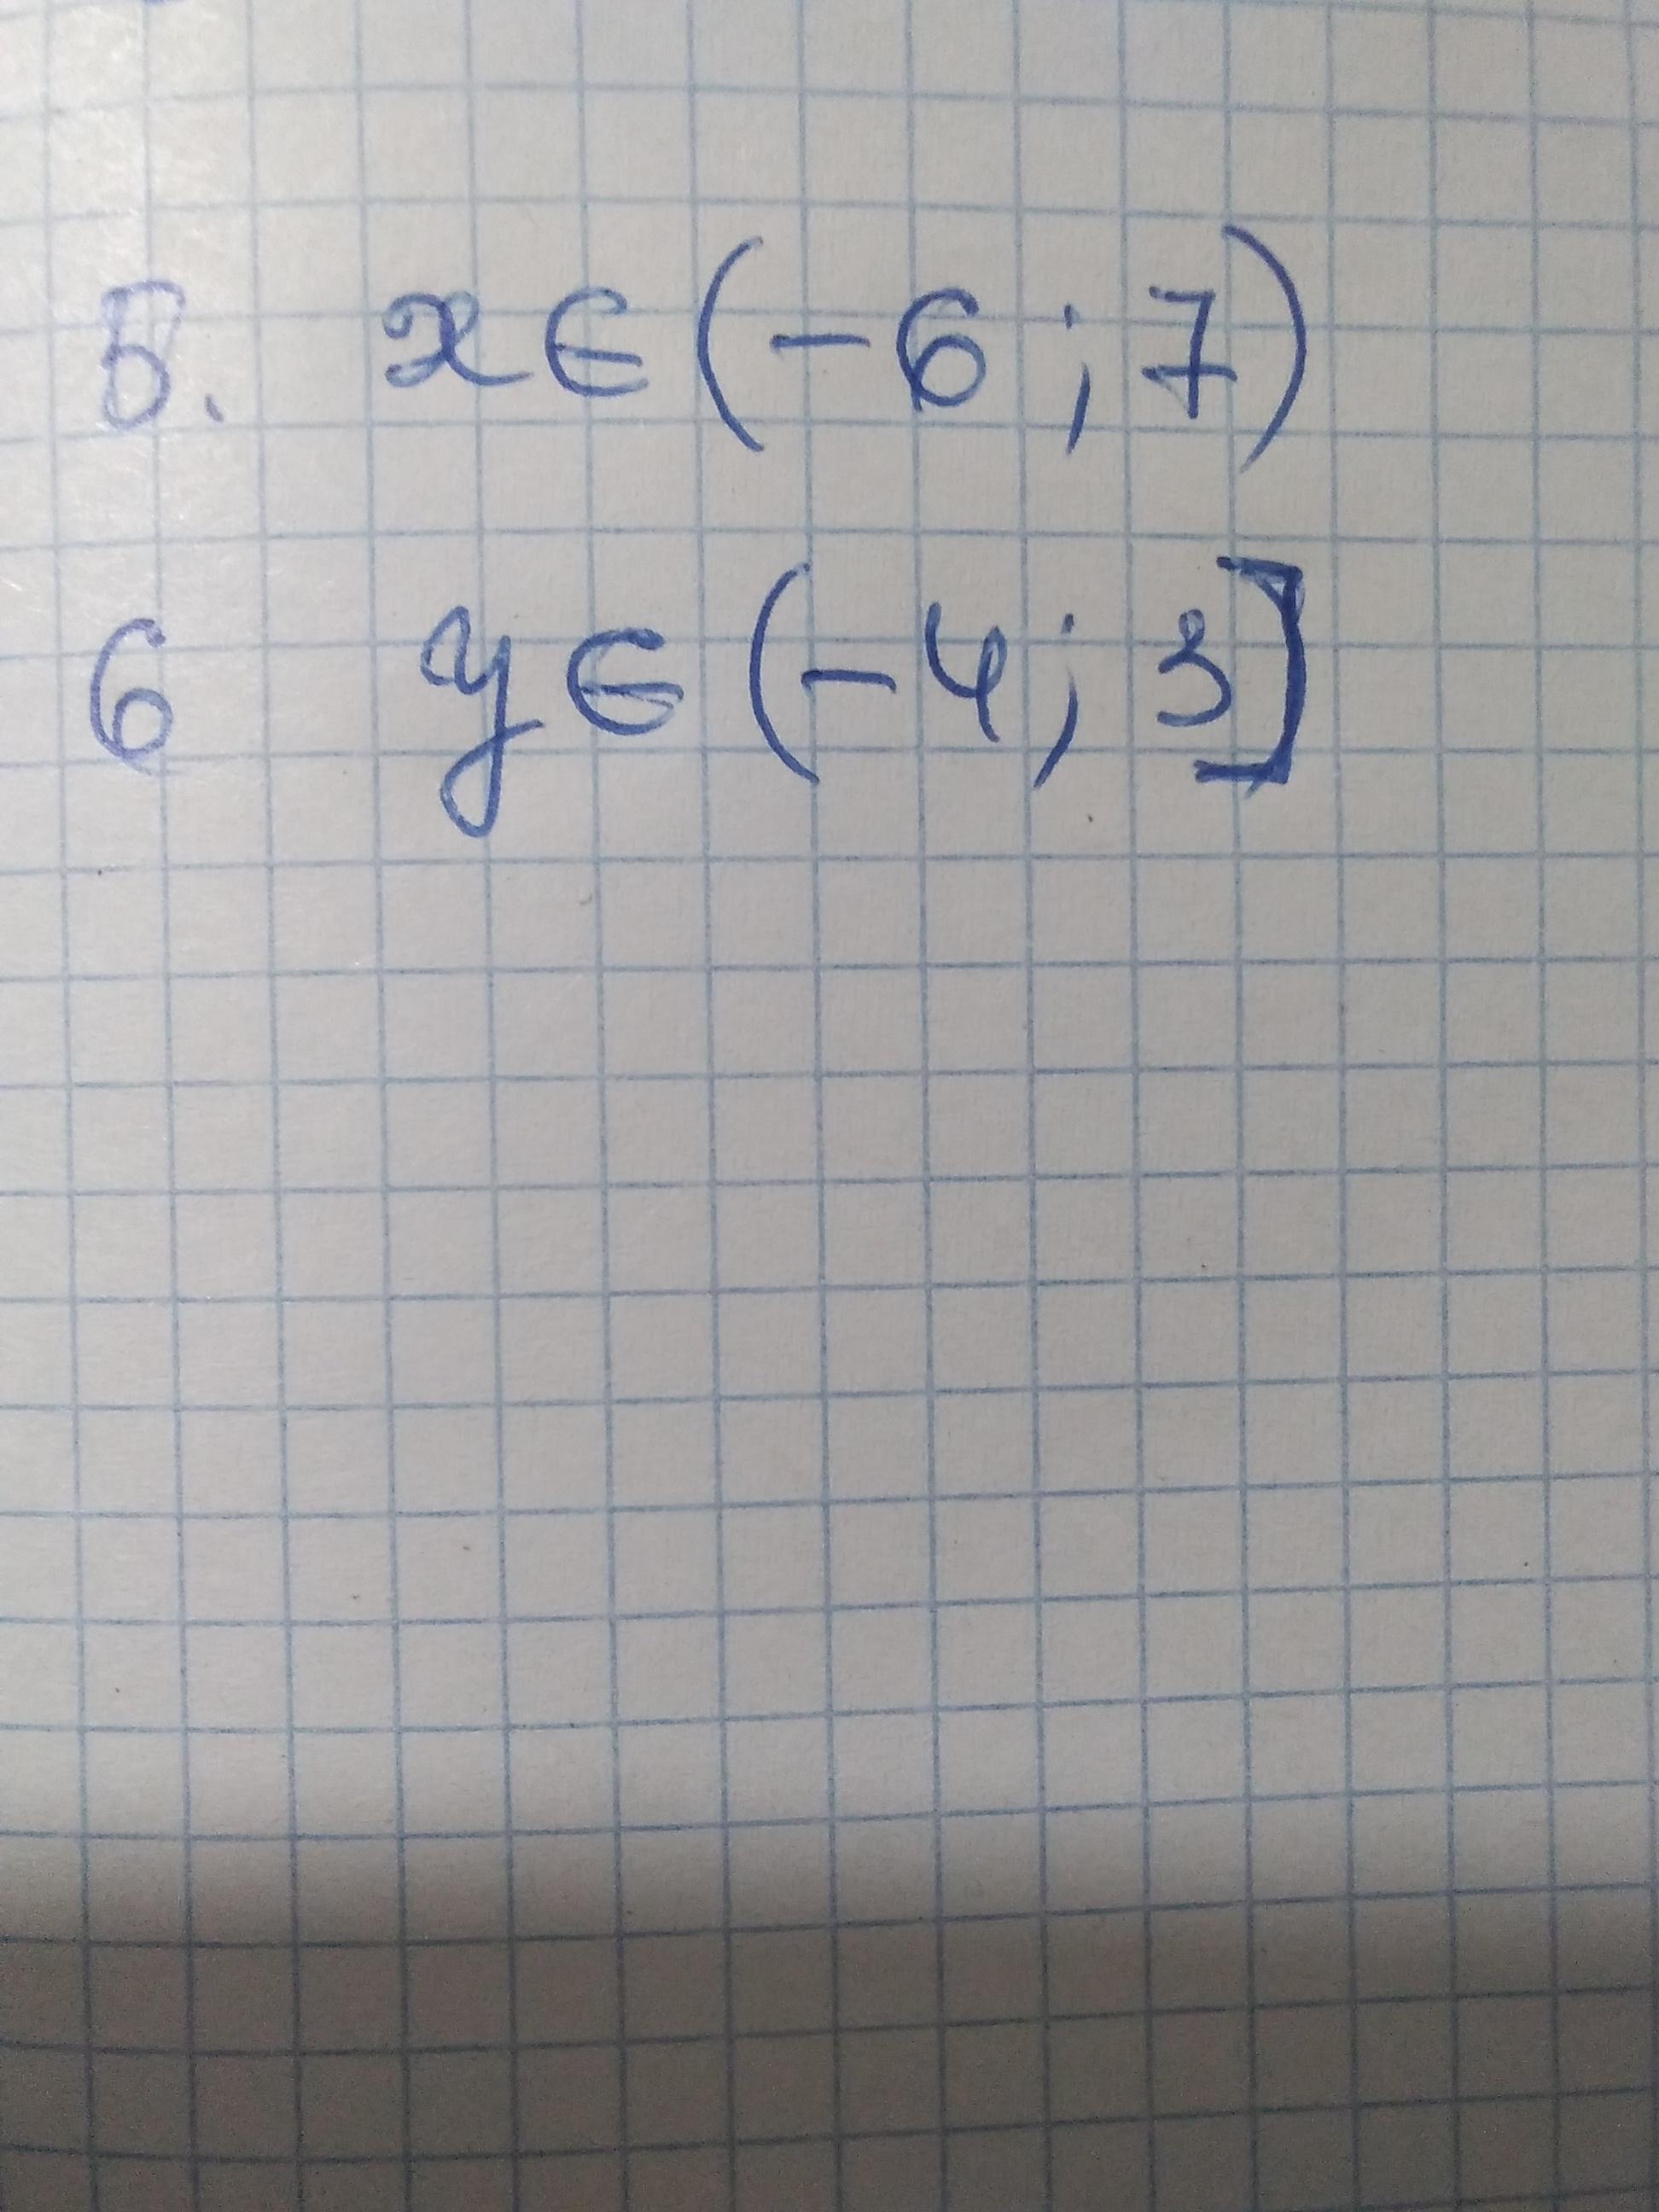 5. x∈(-6;7)
6 y∈(-4;3]